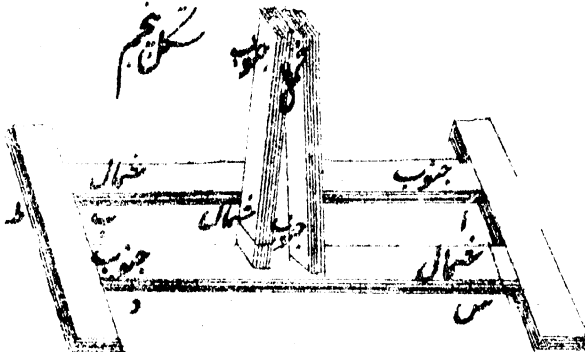 شکل پنجم
جنوب شمال
شمال جنوب
ا
ط ب شمال جنوب
جنوب شمال
د س